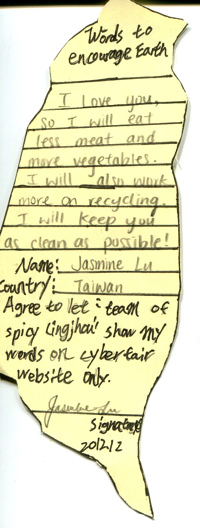 Words to
encourage Earth
I love you,
so I will eat
less meat and
more vegetables.
I will also work
more on recycling.
I will keep you
as clean as possible!
Name: Jasmine Lu
Country: Taiwan
Agree to let "team of
spicy Lingjhou" show my
words on cyberfair
website only.
Jasmine Lu
signature
2012.12